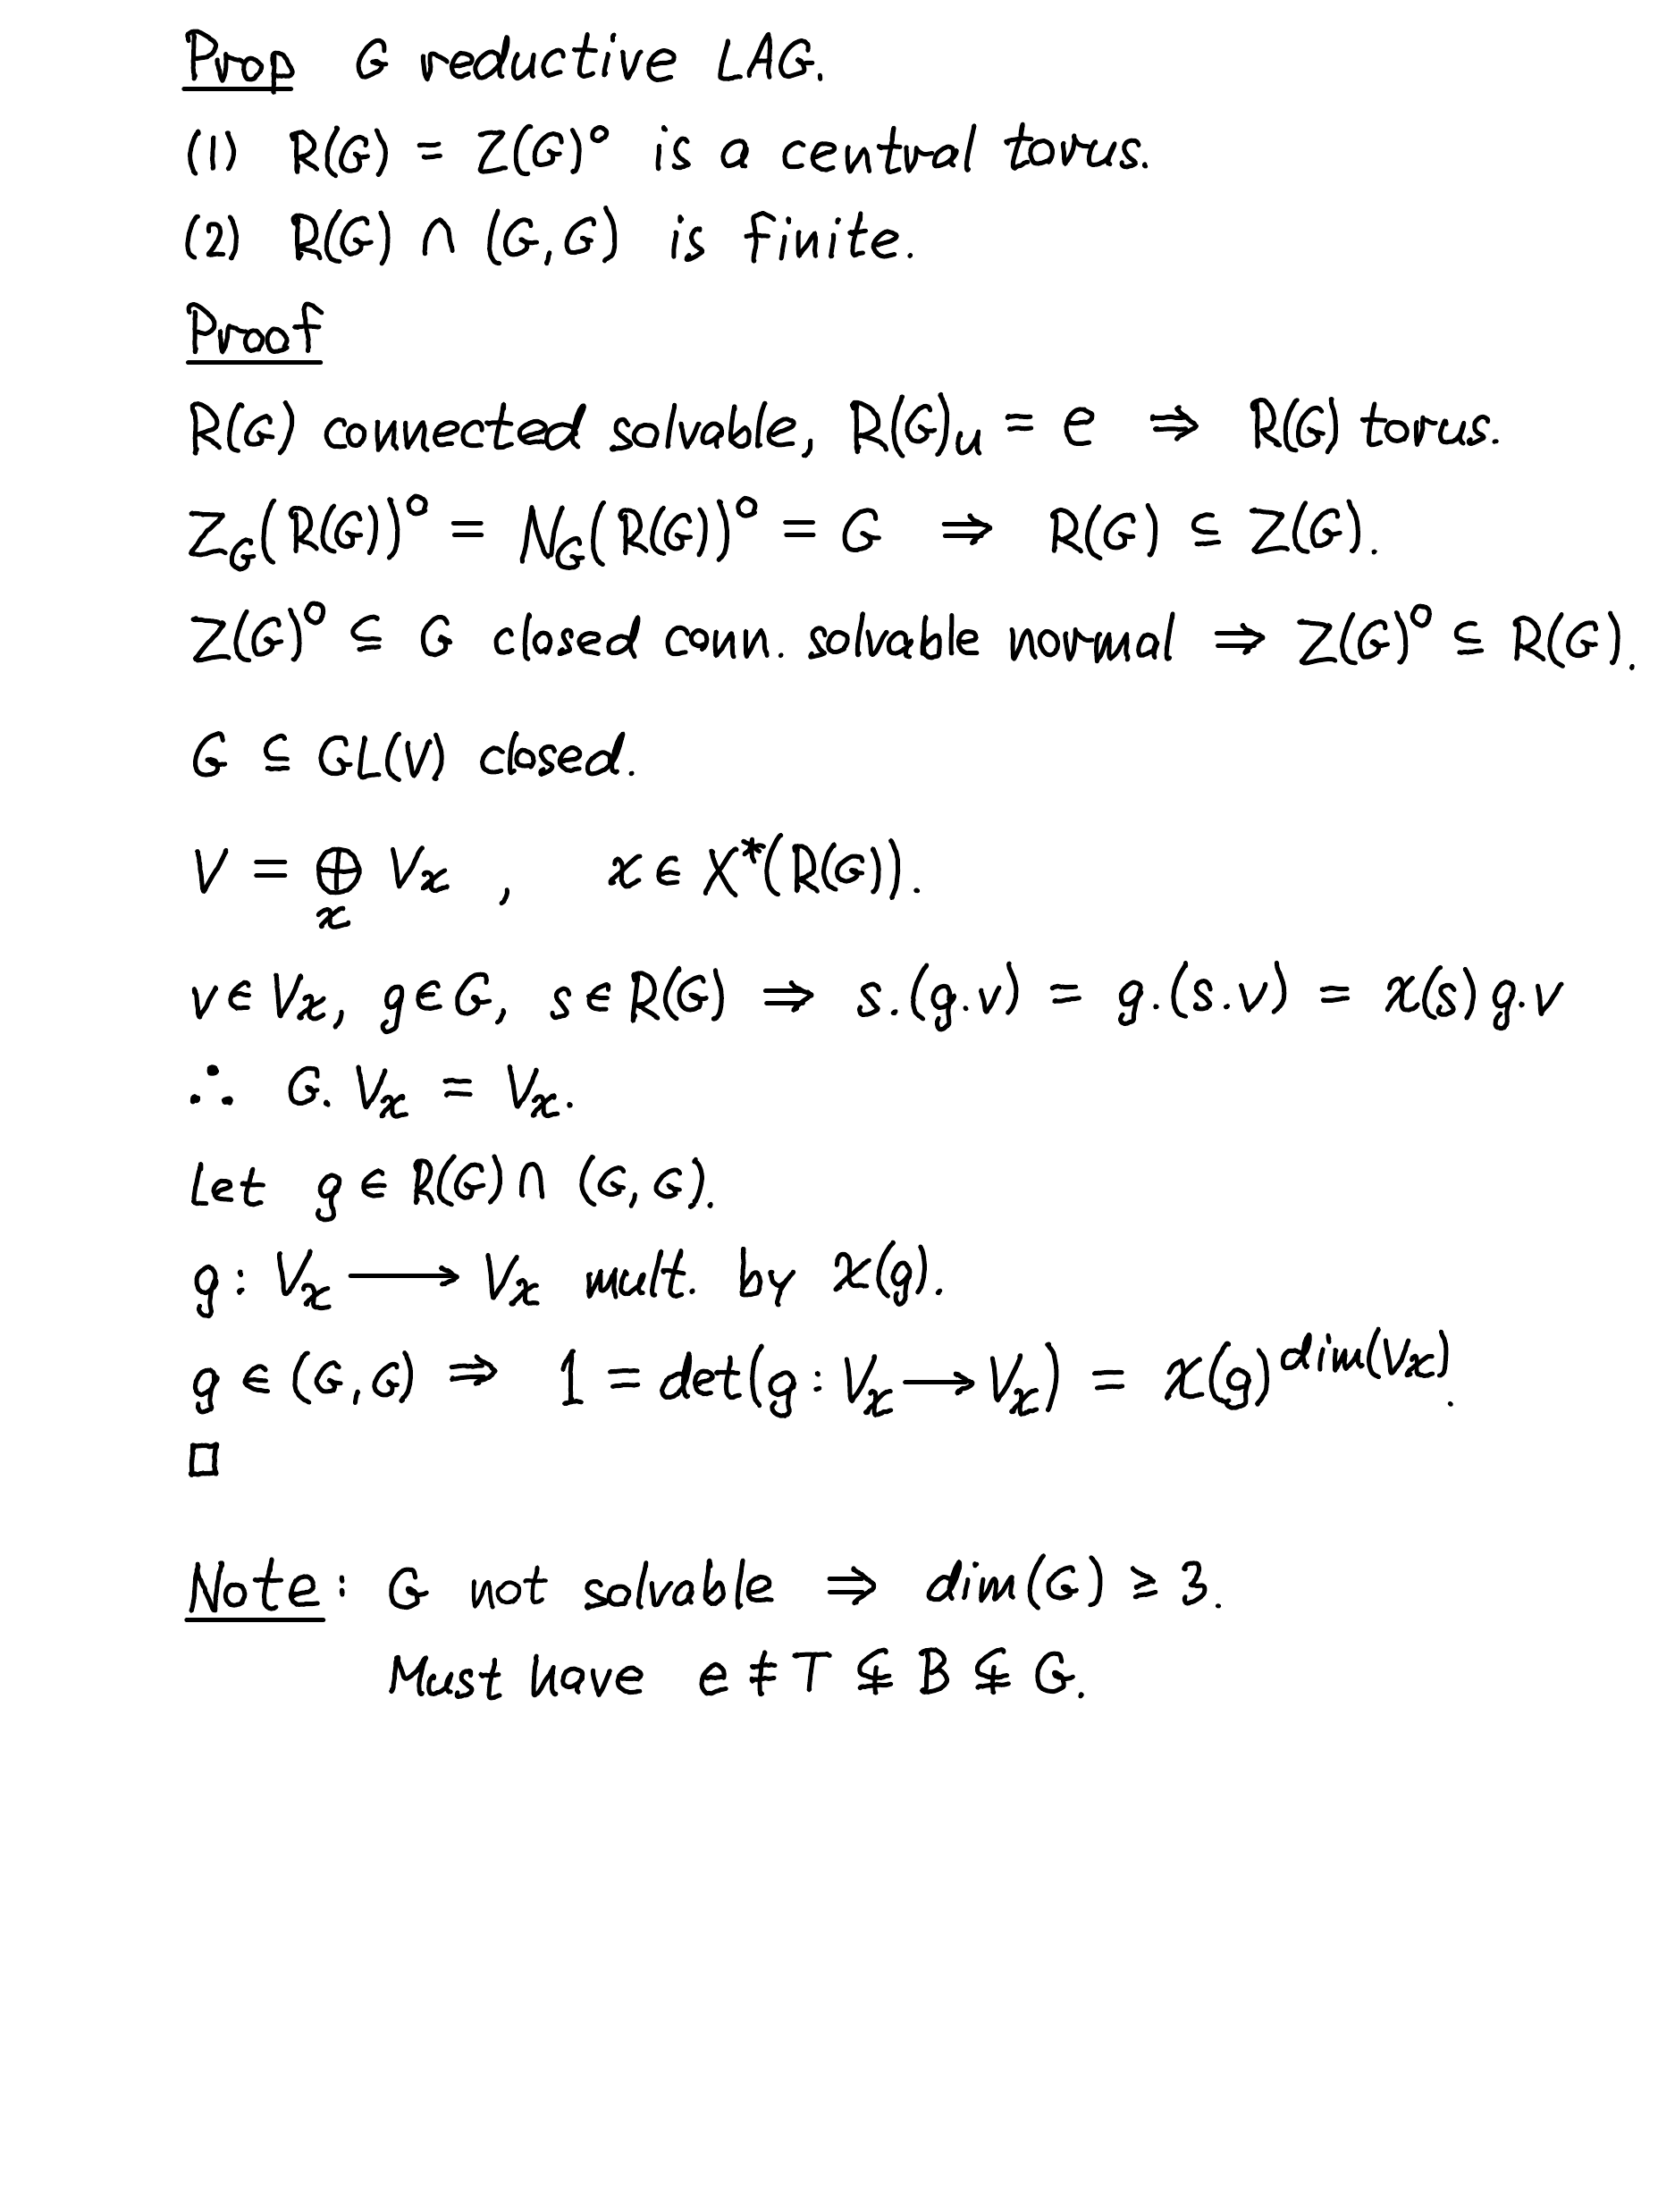 Prop G reductive LAG.
(1) R(G) = Z(G)° is a central torus.
(2) R(G) ∩ (G,G) is finite.
Proof
R(G) connected solvable, R(G)ᵤ = e ⇒ R(G) torus.
Z_G(R(G))° = N_G(R(G))° = G ⇒ R(G) ⊆ Z(G).
Z(G)° ⊆ G closed conn. solvable normal ⇒ Z(G)° ⊆ R(G).
G ⊆ GL(V) closed.
V = ⊕_χ V_χ , χ ∈ X*(R(G)).
v ∈ V_χ, g ∈ G, s ∈ R(G) ⇒ s.(g.v) = g.(s.v) = χ(s) g.v
∴ G. V_χ = V_χ.
Let g ∈ R(G) ∩ (G,G).
g : V_χ ⟶ V_χ mult. by χ(g).
g ∈ (G,G) ⇒ 1 = det(g : V_χ ⟶ V_χ) = χ(g)^dim(V_χ).
□
Note: G not solvable ⇒ dim(G) ≥ 3.
Must have e ≠ T ⊊ B ⊊ G.